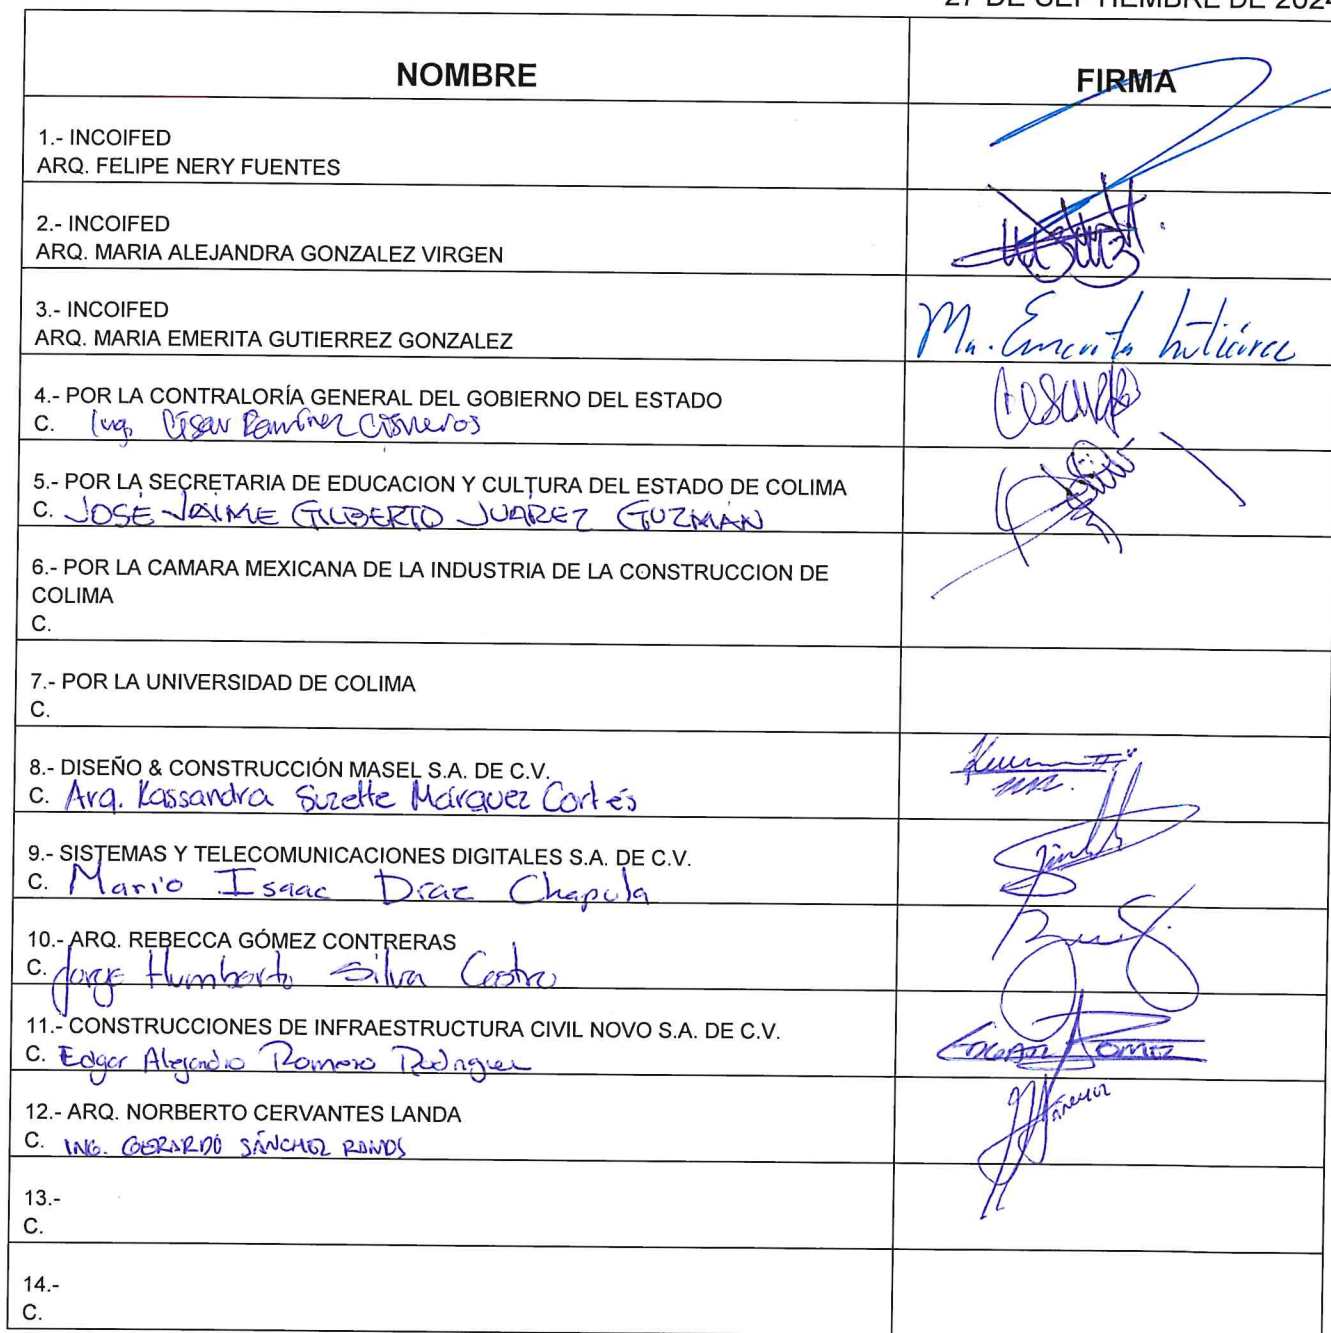 27 DE SEPTIEMBRE DE 2024
NOMBRE
FIRMA
1.- INCOIFED
ARQ. FELIPE NERY FUENTES
2.- INCOIFED
ARQ. MARIA ALEJANDRA GONZALEZ VIRGEN
3.- INCOIFED
ARQ. MARIA EMERITA GUTIERREZ GONZALEZ
Ma. Emerita Gutiérrez
4.- POR LA CONTRALORÍA GENERAL DEL GOBIERNO DEL ESTADO
C. Ing. César Ramírez Cisneros
5.- POR LA SECRETARIA DE EDUCACION Y CULTURA DEL ESTADO DE COLIMA
C. JOSÉ JAIME GILBERTO JUÁREZ GUZMÁN
6.- POR LA CAMARA MEXICANA DE LA INDUSTRIA DE LA CONSTRUCCION DE
COLIMA
C.
7.- POR LA UNIVERSIDAD DE COLIMA
C.
8.- DISEÑO & CONSTRUCCIÓN MASEL S.A. DE C.V.
C. Arq. Kassandra Suzette Márquez Cortés
9.- SISTEMAS Y TELECOMUNICACIONES DIGITALES S.A. DE C.V.
C. Mario Isaac Díaz Chapula
10.- ARQ. REBECCA GÓMEZ CONTRERAS
C. Jorge Humberto Silva Castro
11.- CONSTRUCCIONES DE INFRAESTRUCTURA CIVIL NOVO S.A. DE C.V.
C. Edgar Alejandro Romero Rodriguez
12.- ARQ. NORBERTO CERVANTES LANDA
C. ING. GERARDO SÁNCHEZ RAMOS
13.-
C.
14.-
C.